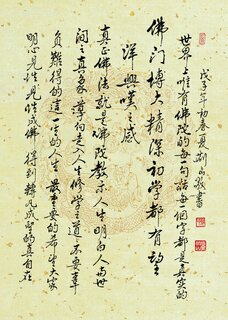 戊子年初春夏敬書
世界上唯有佛陀的每一句話每個字都是真實的
佛門博大精深初学都有望
洋興嘆之感
真正佛法就是佛陀教示人生明白人与世
间之真象导向走人生修学之道不要辜
负難得的這一的人生最重要的希望大家
明心見性見性成佛得到转凡成聖的真自在